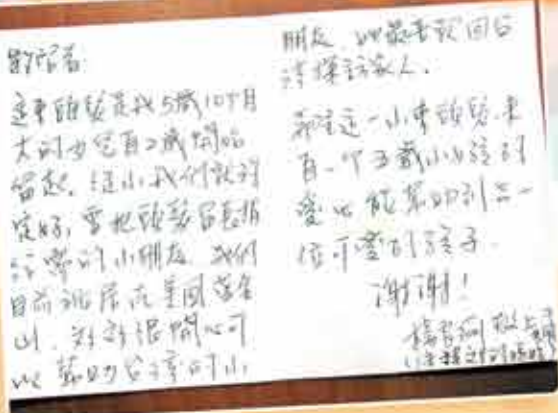 這束頭髮是我5歲10個月
大的女兒自2歲開始
留起.從小我們就約
定好,當把頭髮留長捐
給需要的小朋友.我們
目前旅居在美國舊金
山,對於很開心可
以幫助台灣的小
朋友,也最喜歡回台
灣探訪家人.
希望這一小束頭髮,來
自一個五歲小女孩的
愛心能幫助到另一
位可愛的孩子.
謝謝!